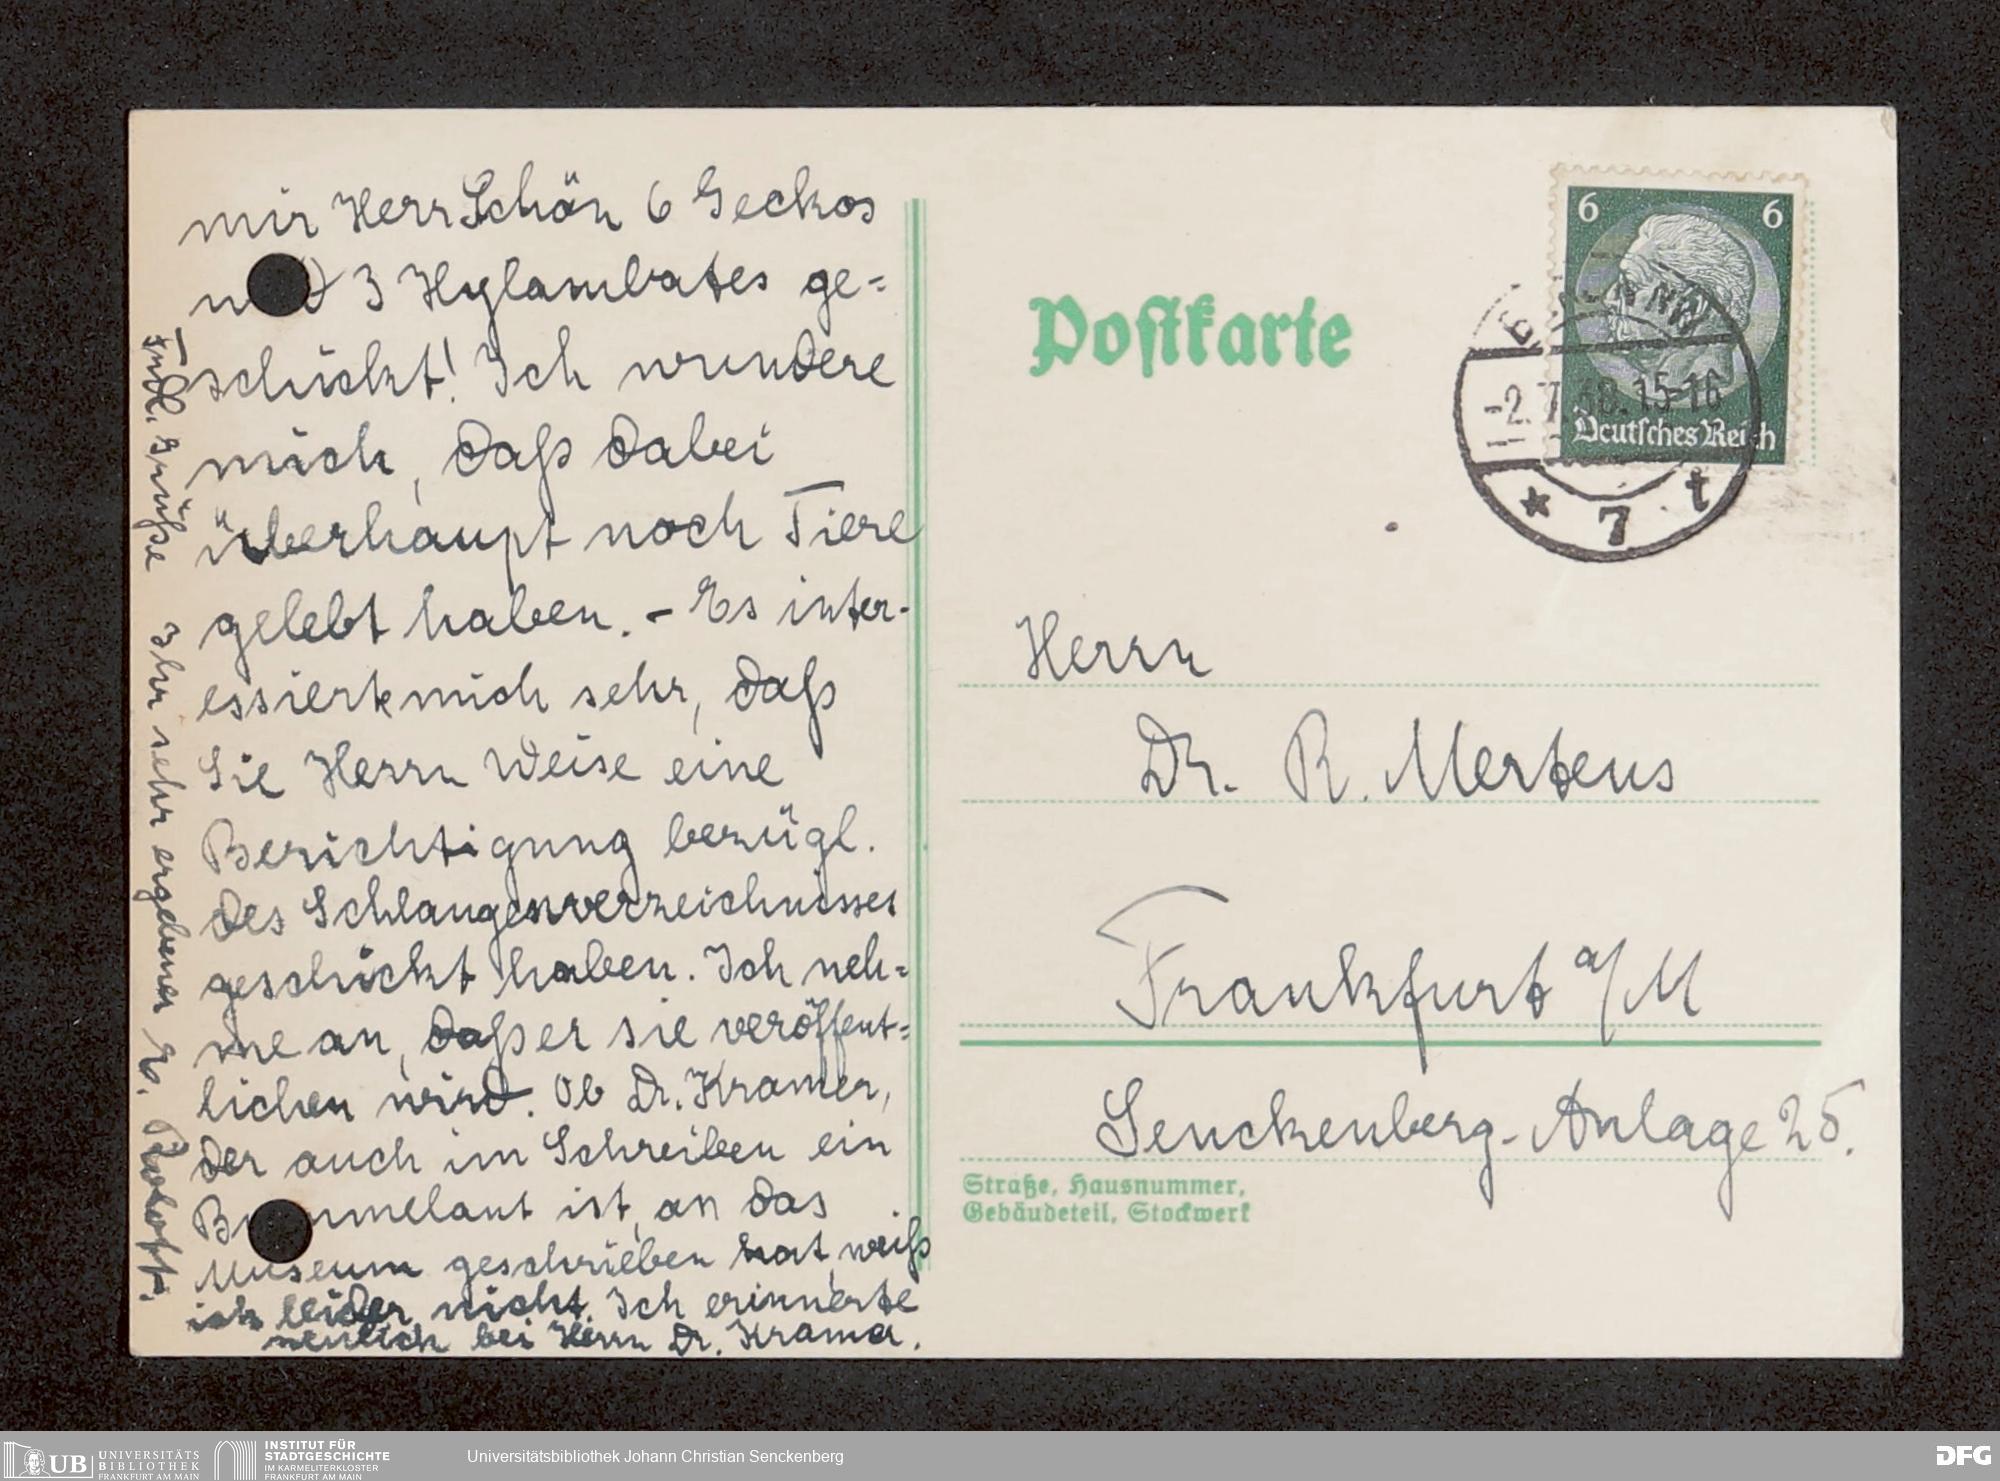 mir Herr Schön 6 Geckos
und 3 Hylambates ge=
schickt! Ich wundere
mich, daß dabei
überhaupt noch Tiere
gelebt haben. – Es inter-
essierte mich sehr, daß
Sie Herrn Weise eine
Berichtigung bezügl.
des Schlangenverzeichnisses
geschickt haben. Ich neh=
me an, daß er sie veröffent=
lichen wird. Ob Dr. Kramer,
der auch im Schreiben ein
Bummelant ist, an das
Museum geschrieben hat, weiß
ich leider nicht. Ich erinnerte
neulich bei Herrn Dr. Kramer.
Frdl. Grüße Ihr sehr ergebener
Postkarte
6 6
Deutsches Reich
-2.7.38.15-16
* 7 t
Herrn
Dr. R. Mertens
Frankfurt a/M
Senckenberg-Anlage 25.
Straße, Hausnummer,
Gebäudeteil, Stockwerk
UB UNIVERSITÄTS
BIBLIOTHEK
FRANKFURT AM MAIN
INSTITUT FÜR
STADTGESCHICHTE
IM KARMELITERKLOSTER
FRANKFURT AM MAIN
Universitätsbibliothek Johann Christian Senckenberg
DFG